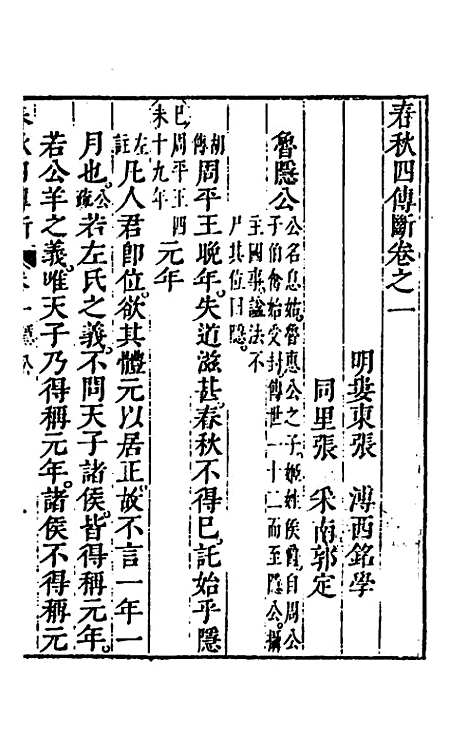 春秋四傳斷卷之一
明婁東張　溥西銘學
同里張　采南郭定
魯隱公公名息姑魯惠公之子姬姓侯爵自周公
子伯禽始受封傳世一十二而至隱公攝
主國事諡法不
尸其位曰隱
胡傳周平王晚年失道滋甚春秋不得已託始乎隱
己未周平王四十九年元年
左註凡人君卽位欲其體元以居正故不言一年一
月也公疏若左氏之義不問天子諸侯皆得稱元年
若公羊之義唯天子乃得稱元年諸侯不得稱元